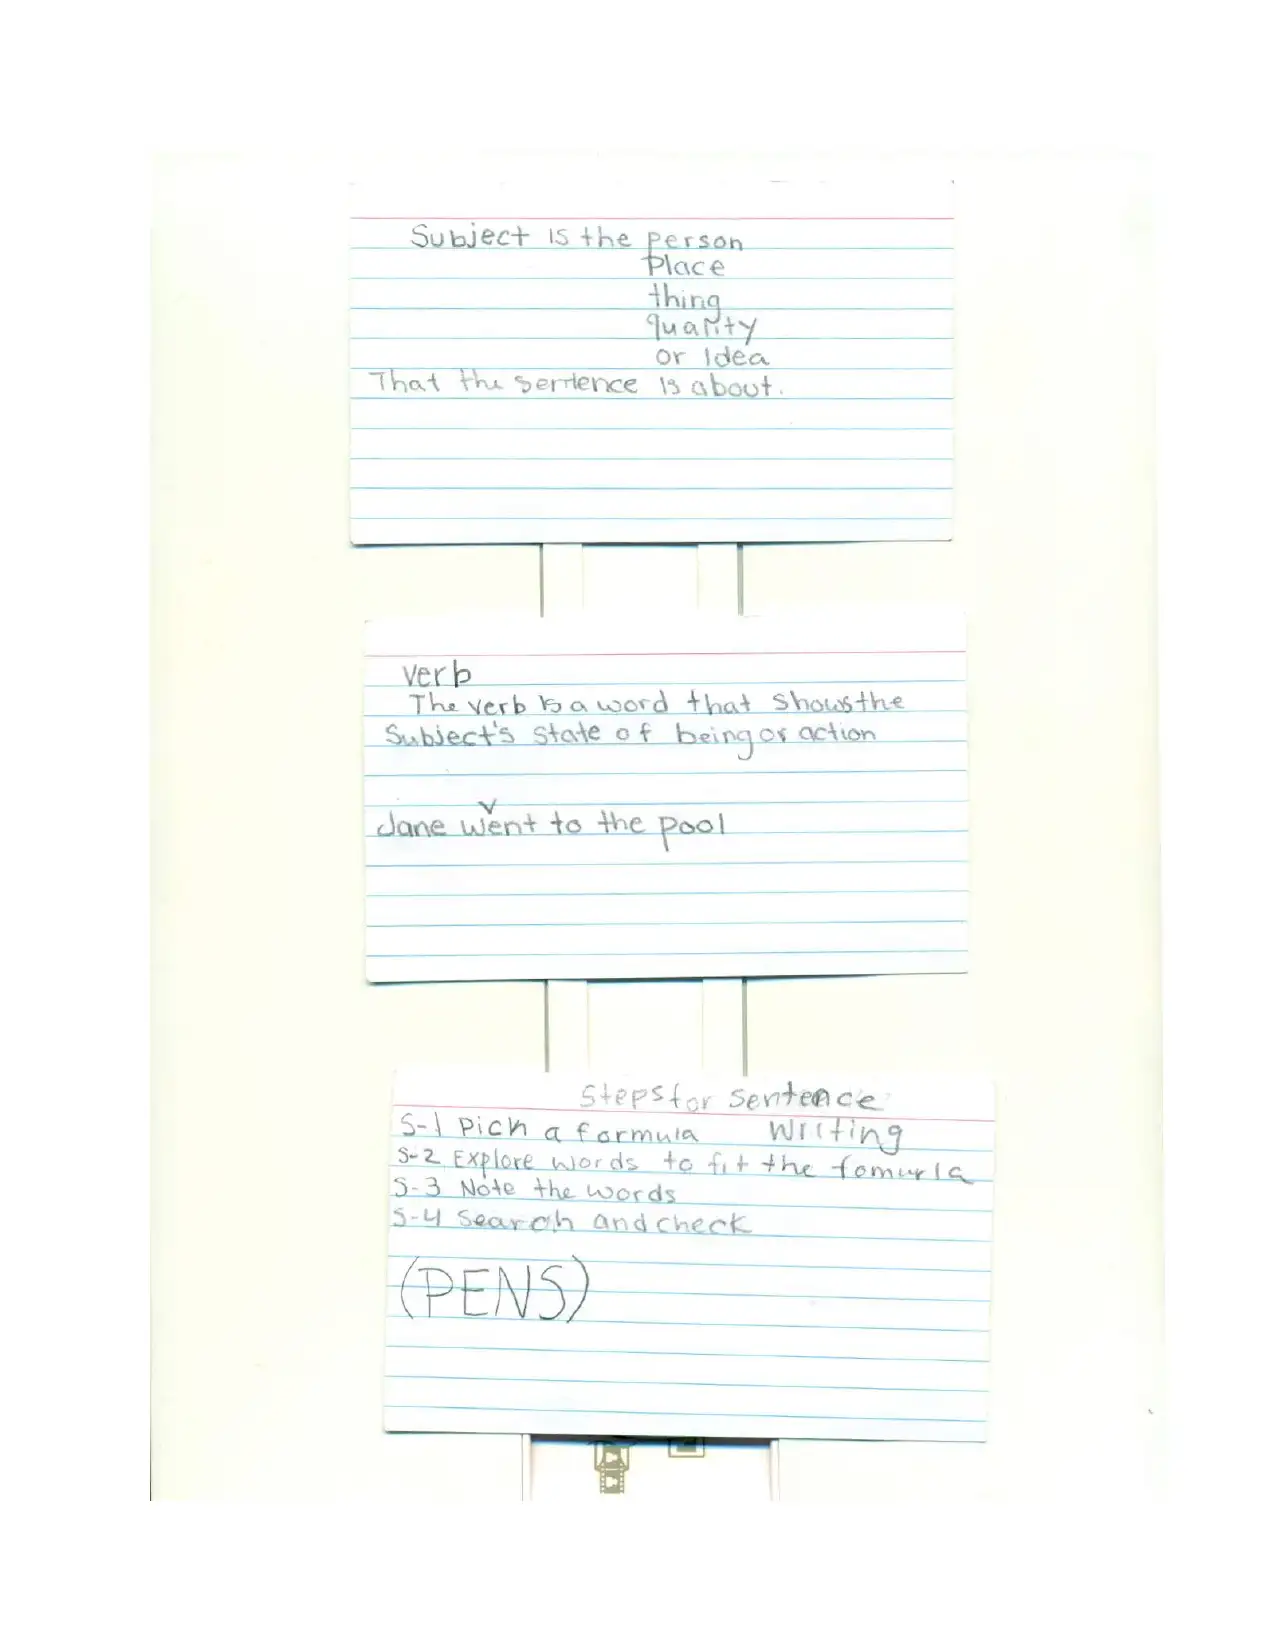 Subject is the person
Place
thing
quality
or Idea
That the sentence is about.
Verb
The verb is a word that shows the
Subject's state of being or action
v
Jane went to the pool
Steps for Sentence
Writing
S-1 Pich a formula
S-2 Explore words to fit the fomurla
S-3 Note the words
S-4 Search and check
(PENS)